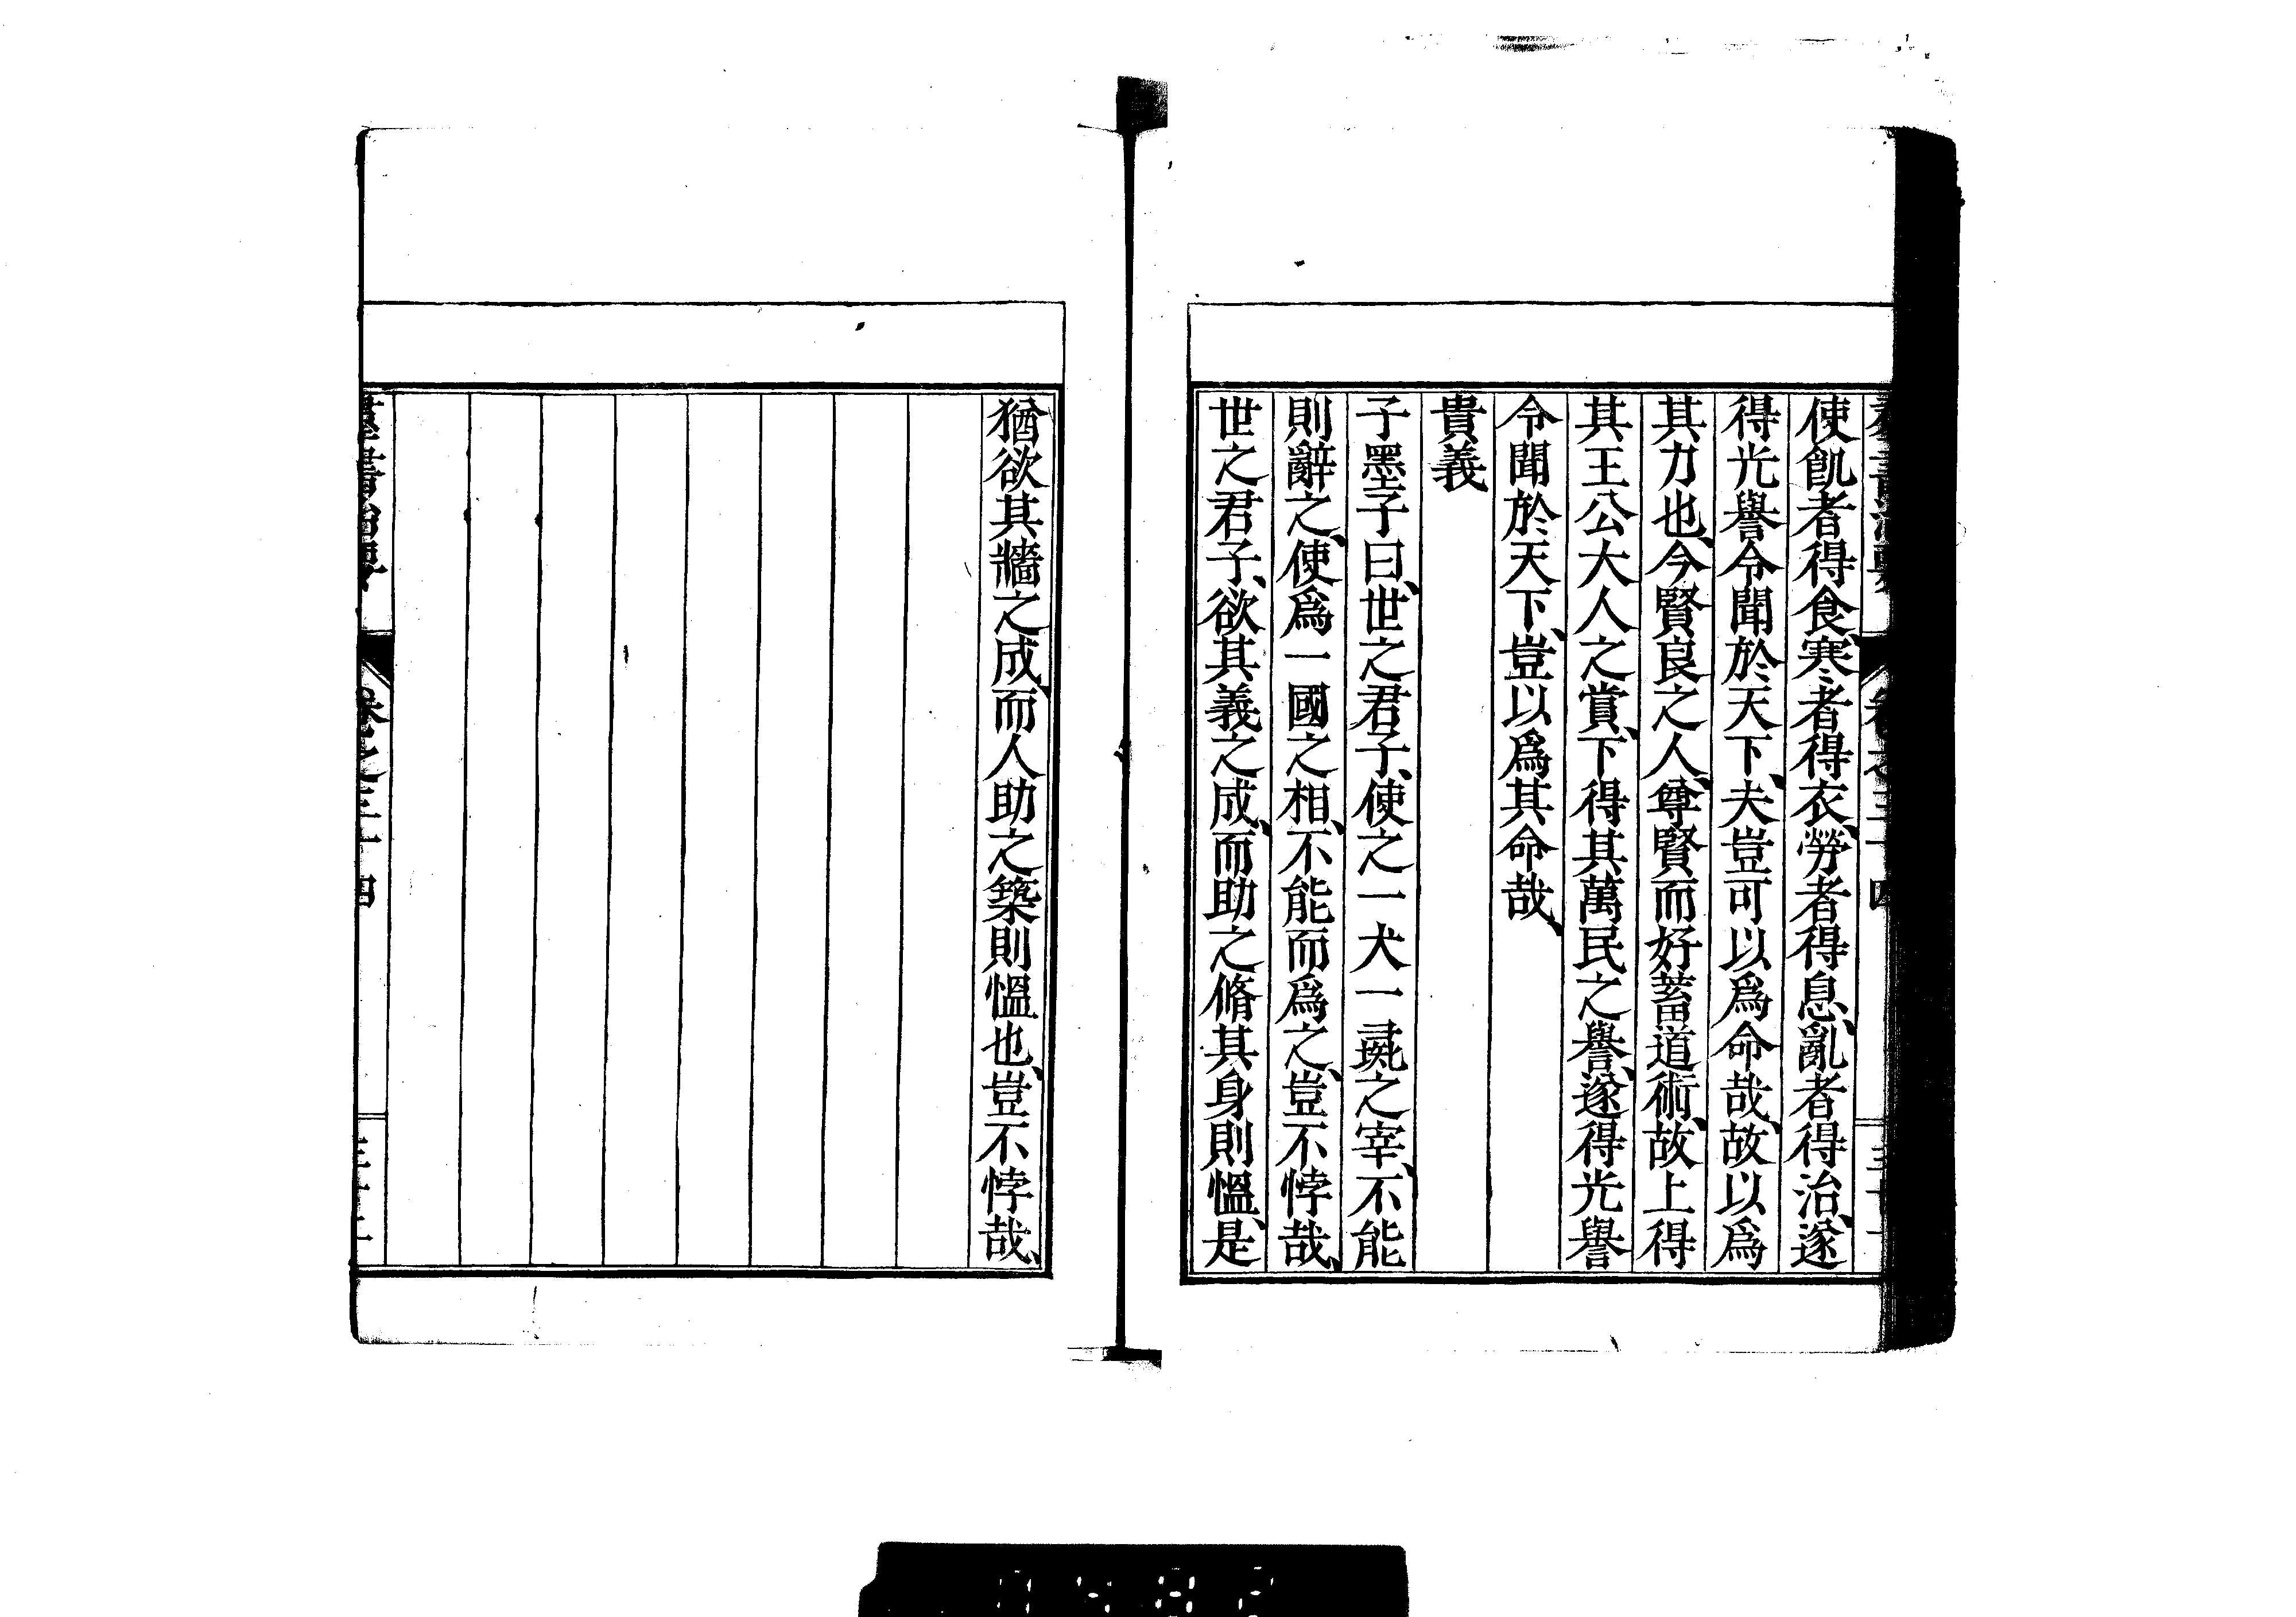 使飢者得食、寒者得衣、勞者得息、亂者得治、遂
得光譽令聞於天下、夫豈可以爲命哉、故以爲
其力也、今賢良之人、尊賢而好蓄道術、故上得
其王公大人之賞、下得其萬民之譽、遂得光譽
令聞於天下、豈以爲其命哉、
貴義
子墨子曰、世之君子、使之一犬一彘之宰、不能
則辭之、使爲一國之相、不能而爲之、豈不悖哉、
世之君子、欲其義之成、而助之脩其身則慍、是
猶欲其牆之成、而人助之築則慍也、豈不悖哉、
羣書治要 卷之三十四